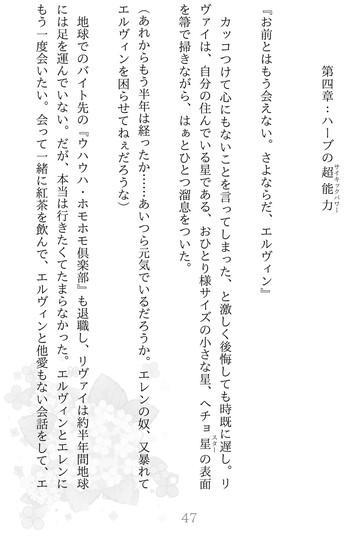 第四章：ハーブの超能力
サイキックパワー
『お前とはもう会えない。さよならだ、エルヴィン』
カッコつけて心にもないことを言ってしまった、と激しく後悔しても時既に遅し。リ
ヴァイは、自分の住んでいる星である、おひとり様サイズの小さな星、ヘチョ星の表面
スター
を箒で掃きながら、はぁとひとつ溜息をついた。
（あれからもう半年は経ったか……あいつら元気でいるだろうか。エレンの奴、又暴れて
エルヴィンを困らせてねぇだろうな）
地球でのバイト先の『ウハウハ・ホモホモ倶楽部』も退職し、リヴァイは約半年間地球
には足を運んでいない。だが、本当は行きたくてたまらなかった。エルヴィンとエレンに
もう一度会いたい。会って一緒に紅茶を飲んで、エルヴィンと他愛もない会話をして、エ
47